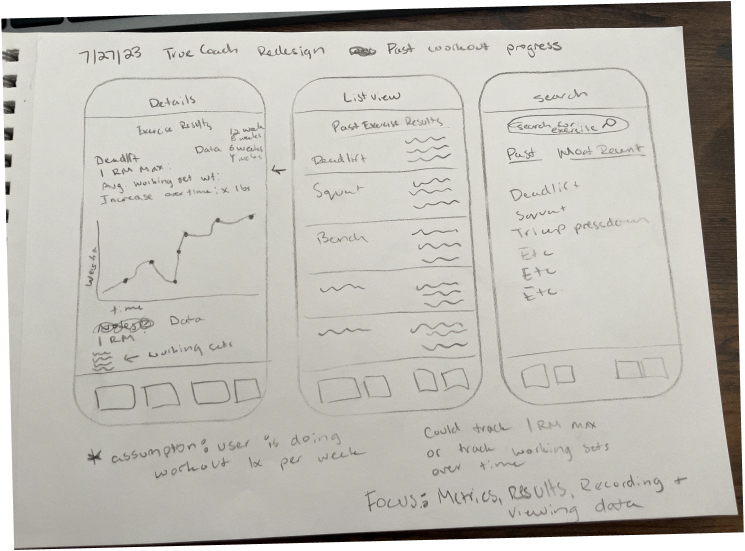 7/27/23 True Coach Redesign Past workout progress
Details
Exercise Results
12 week
8 weeks
Data 6 weeks
4 weeks
Deadlift
1 RM Max:
Avg working set wt:
Increase over time: x lbs
Weight
time
Data
1 RM
← working sets
List view
Past Exercise Results
Deadlift
Squat
Bench
Search
Search for
exercise
Past Most Recent
Deadlift
Squat
Tricep pressdown
Etc
Etc
Etc.
* assumption: user is doing
workout 1x per week
Could track 1 RM max
or track working sets
over time
Focus: Metrics, Results, Recording +
viewing data